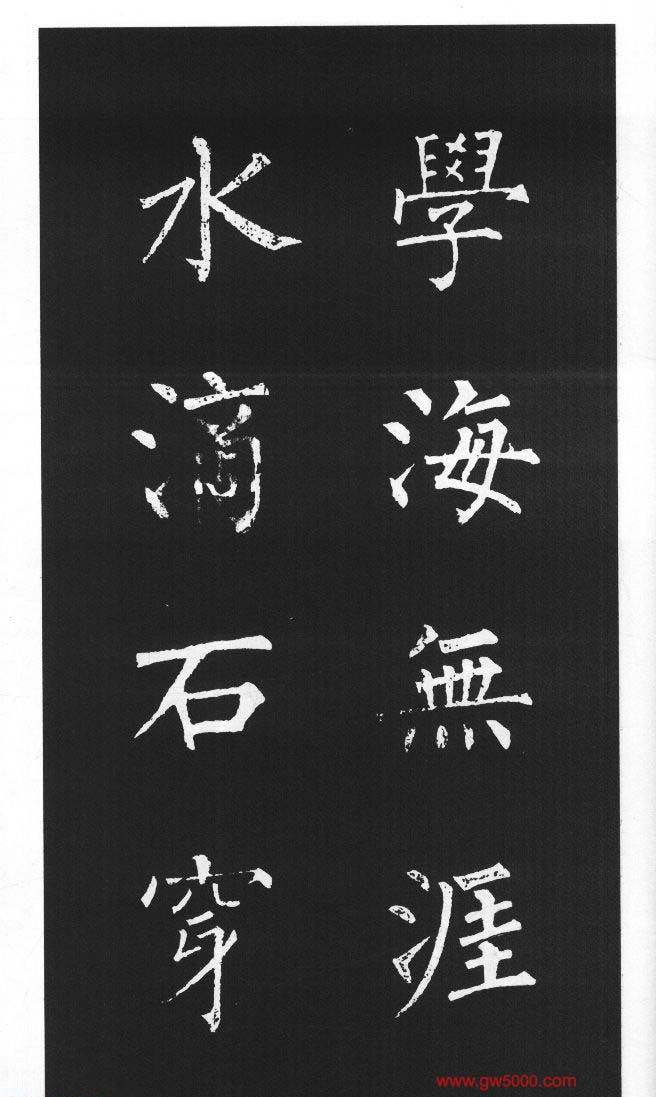 學海無涯
水滴石穿
www.gw5000.com